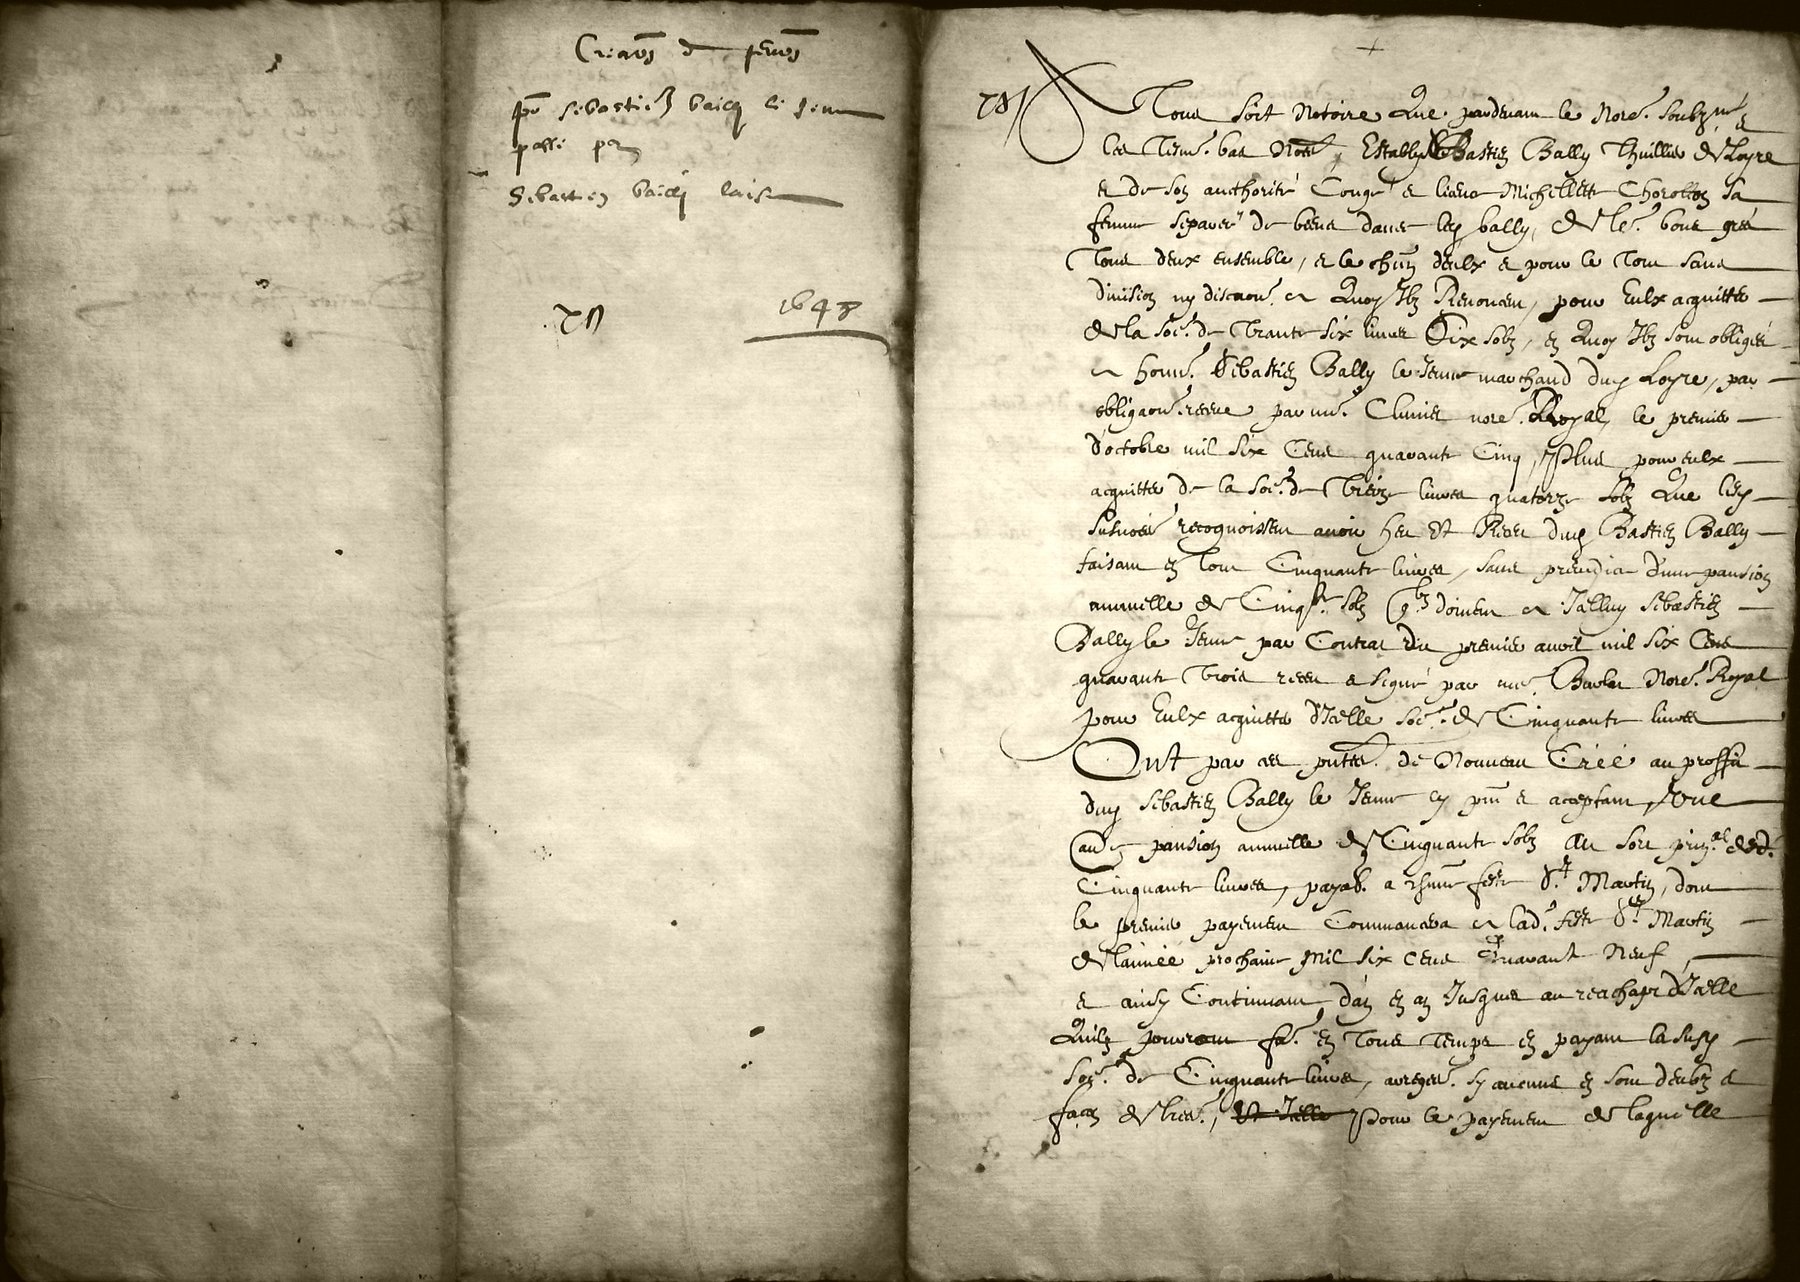 Creaõn de penõn
po˜ sebastien bailly le jeune
passé par
Sebastien bailly laisn
1648
A Tous soit Notoire Que pardevant le Nore. soubzne. e
les Tesm. bas Només, Estably Bastien Bally Thuillier de Loyre
e de son aucthorité Congé e licence Michellette Chorollon sa
femme separée de biens davec led. bally, de le. bons grés
Tous deux ensemble, e le chũn deulx e pour le Tout sans
division ny discuon. a Quoy Ilz Renoncent, pour Eulx acquitter
de la soe. de Trante six livres Dix solz, en Quoy Ilz sont obligés
a honn. Sebastien Bally le Jeune marchand dud. Loyre, par
obligaon. receue par me. Clunier nore. Royal, le premier
d'octobre mil six Cens quarante Cinq, Plus pour eulx
acquitter de la soe. de Treize livres quatorze solz Que lesd.
susnoés recognoissent avoir heu Et Receu dud. Bastien Bally
faisant en tout Cinquante livres, sans preiudice d'une pansion
annuelle de Cinq solz q'lz doivent a Icelluy sebastien
Bally le Jeune par Contrat du premier avril mil six Cens
quarante Trois receu e signé par me. Nore. Royal
pour Eulx acquitter d'Icelle soe. de Cinquante livres
Ont par ces pntes. de Nouveau Créé au proffit
dud. Sebastien Bally le Jeune cy pnt e acceptant, Une
pansion annuelle de Cinquante solz Au sort prin.al desd.
Cinquante livres, payab. a chune feste St Martin, dont
le premier payement Commancera a lad. feste St Martin
de lannée prochaine Mil six cens Quarante Neuf,
e ainsy Continuant d'an en an Jusques au reachapt d'Icelle
Quilz pourront fe. en Tous Temps en payant la susd.
soe. de Cinquante livres, arreges. sy aucuns en sont deubz e
facon de lres., Et Icelle Pour le payement de laquelle